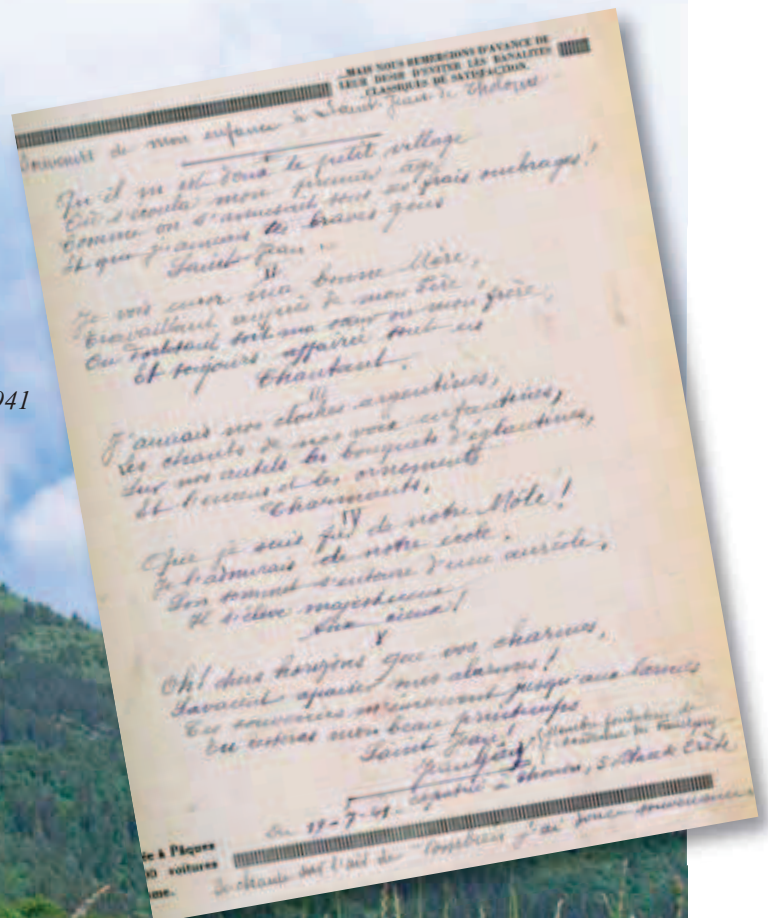 MAIS NOUS REMERCIONS D'AVANCE DE
LEUR DESIR D'EVITER LES BANALITES
CLASSIQUES DE SATISFACTION.
Souvenirs de mon enfance à Saint Jean de Tholome
Qu'il m'est doux le petit village
Où s'écoula mon premier âge
Comme on s'amusait sous ses frais ombrages!
Et que j'aimais les braves gens
Saint Jean
II
Je vois encor ma bonne Mère,
Travaillant auprès de mon Père!
Ou dorlotant soit ma sœur ou mon frère,
Et toujours affairée tout en
Chantant.
III
J'aimais nos cloches argentines,
Les chants de nos voix enfantines,
Sur nos autels les bouquets d'églantines,
Et l'encens et les ornements
Charmants.
IV
Que je suis fier de notre Môle!
Je l'admirais de notre école.
Son sommet s'entoure d'une auréole,
Il s'élève majestueux
Aux cieux!
V
Oh! chers horizons que vos charmes,
Savaient apaiser mes alarmes!
Tes souvenirs m'émeuvent jusqu'aux larmes
Tu resteras mon beau printemps
Saint Jean!
du Faucigny
Du 19-7-41 - à Thonon, 5
Se chante sur l'air de "Combien j'ai douce souvenance
941
ée à Pâques
00 voitures
me.